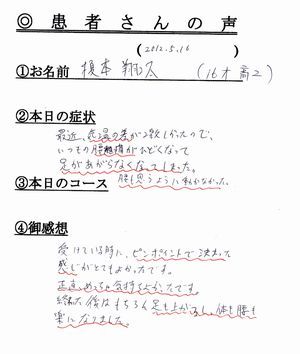 ◎患者さんの声
(2012.5.16)
①お名前 榎本 翔太 (16才 高2)
②本日の症状
最近、気温の差が激しかったので、
いつもの腰痛がひどくなって
足があがらなくなってしまった。
③本日のコース 腕も思うように動かなかった。
④御感想
受けている時に、ピンポイントで決まった
感じがとてもよかったです。
正直めっちゃ気持ちよかったです。
終わった後はもちろん足も上がるし、体も腰も
楽になりました。